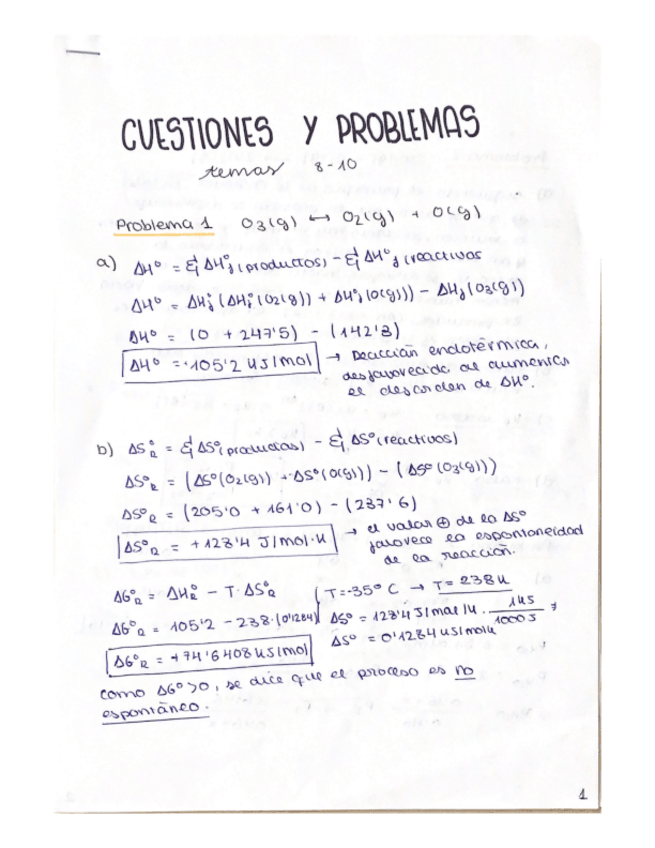 CUESTIONES Y PROBLEMAS
temas 8-10
Problema 1 O3(g) ↔ O2(g) + O(g)
a) ΔHº = Σ ΔHºf (productos) - Σ ΔHºf (reactivos
ΔHº = ΔHºf (ΔHºf (O2(g)) + ΔHºf (O(g))) - ΔHf (O3(g))
ΔHº = (0 + 247'5) - (142'3)
ΔHº = +105'2 kJ/mol → Reacción endotérmica,
desfavorecida al aumentar
el desorden de ΔHº.
b) ΔSºR = Σ ΔSº(productos) - Σ ΔSº(reactivos)
ΔSºR = (ΔSº(O2(g)) + ΔSº(O(g))) - (ΔSº (O3(g)))
ΔSºR = (205'0 + 161'0) - (237'6)
ΔSºR = +128'4 J/mol·K → el valor ⊕ de la ΔSº
favorece la espontaneidad
de la reacción.
ΔGºR = ΔHºR - T·ΔSºR ( T=-35º C → T= 238K
ΔGºR = 105'2 - 238·(0'1284) ΔSº = 128'4 J/mol K · 1kJ/1000J =
ΔSº = 0'1284 kJ/molK
ΔGºR = +74'6408 kJ/mol
como ΔGº>0, se dice que el proceso es no
espontáneo.
1